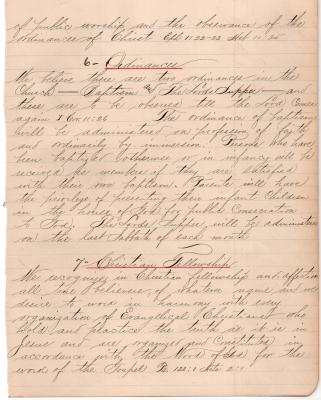 of public worship and the observance of the
ordinances of Christ Eph 1:22-23 Heb 10:25
6- Ordinances
We believe there are two ordinances in the
Church - Baptism & The Lords Supper - and
these are to be observed till the Lord Come
again 1 Cor. 11:26 The ordinance of baptism
will be administered on profession of faith
and ordinarily by immersion. Persons who have
been baptized otherwise or in infancy will be
received as members if they are satisfied
with their own baptism. Parents will have
the privilege of presenting their infant Children
in the house of God for public Consecration
to God. The Lords Supper will be administered
on the last Sabbath of each month
7- Christian Fellowship
We recognize in Christian Fellowship and affection
all true believers, of whatever name and we
desire to work in harmony with every
organization of Evangelical Christians who
hold and practice the truth as it is in
Jesus and are organized and Constituted in
accordance with the Word of God for the
work of the Gospel Ps 133:1 Acts 2:1